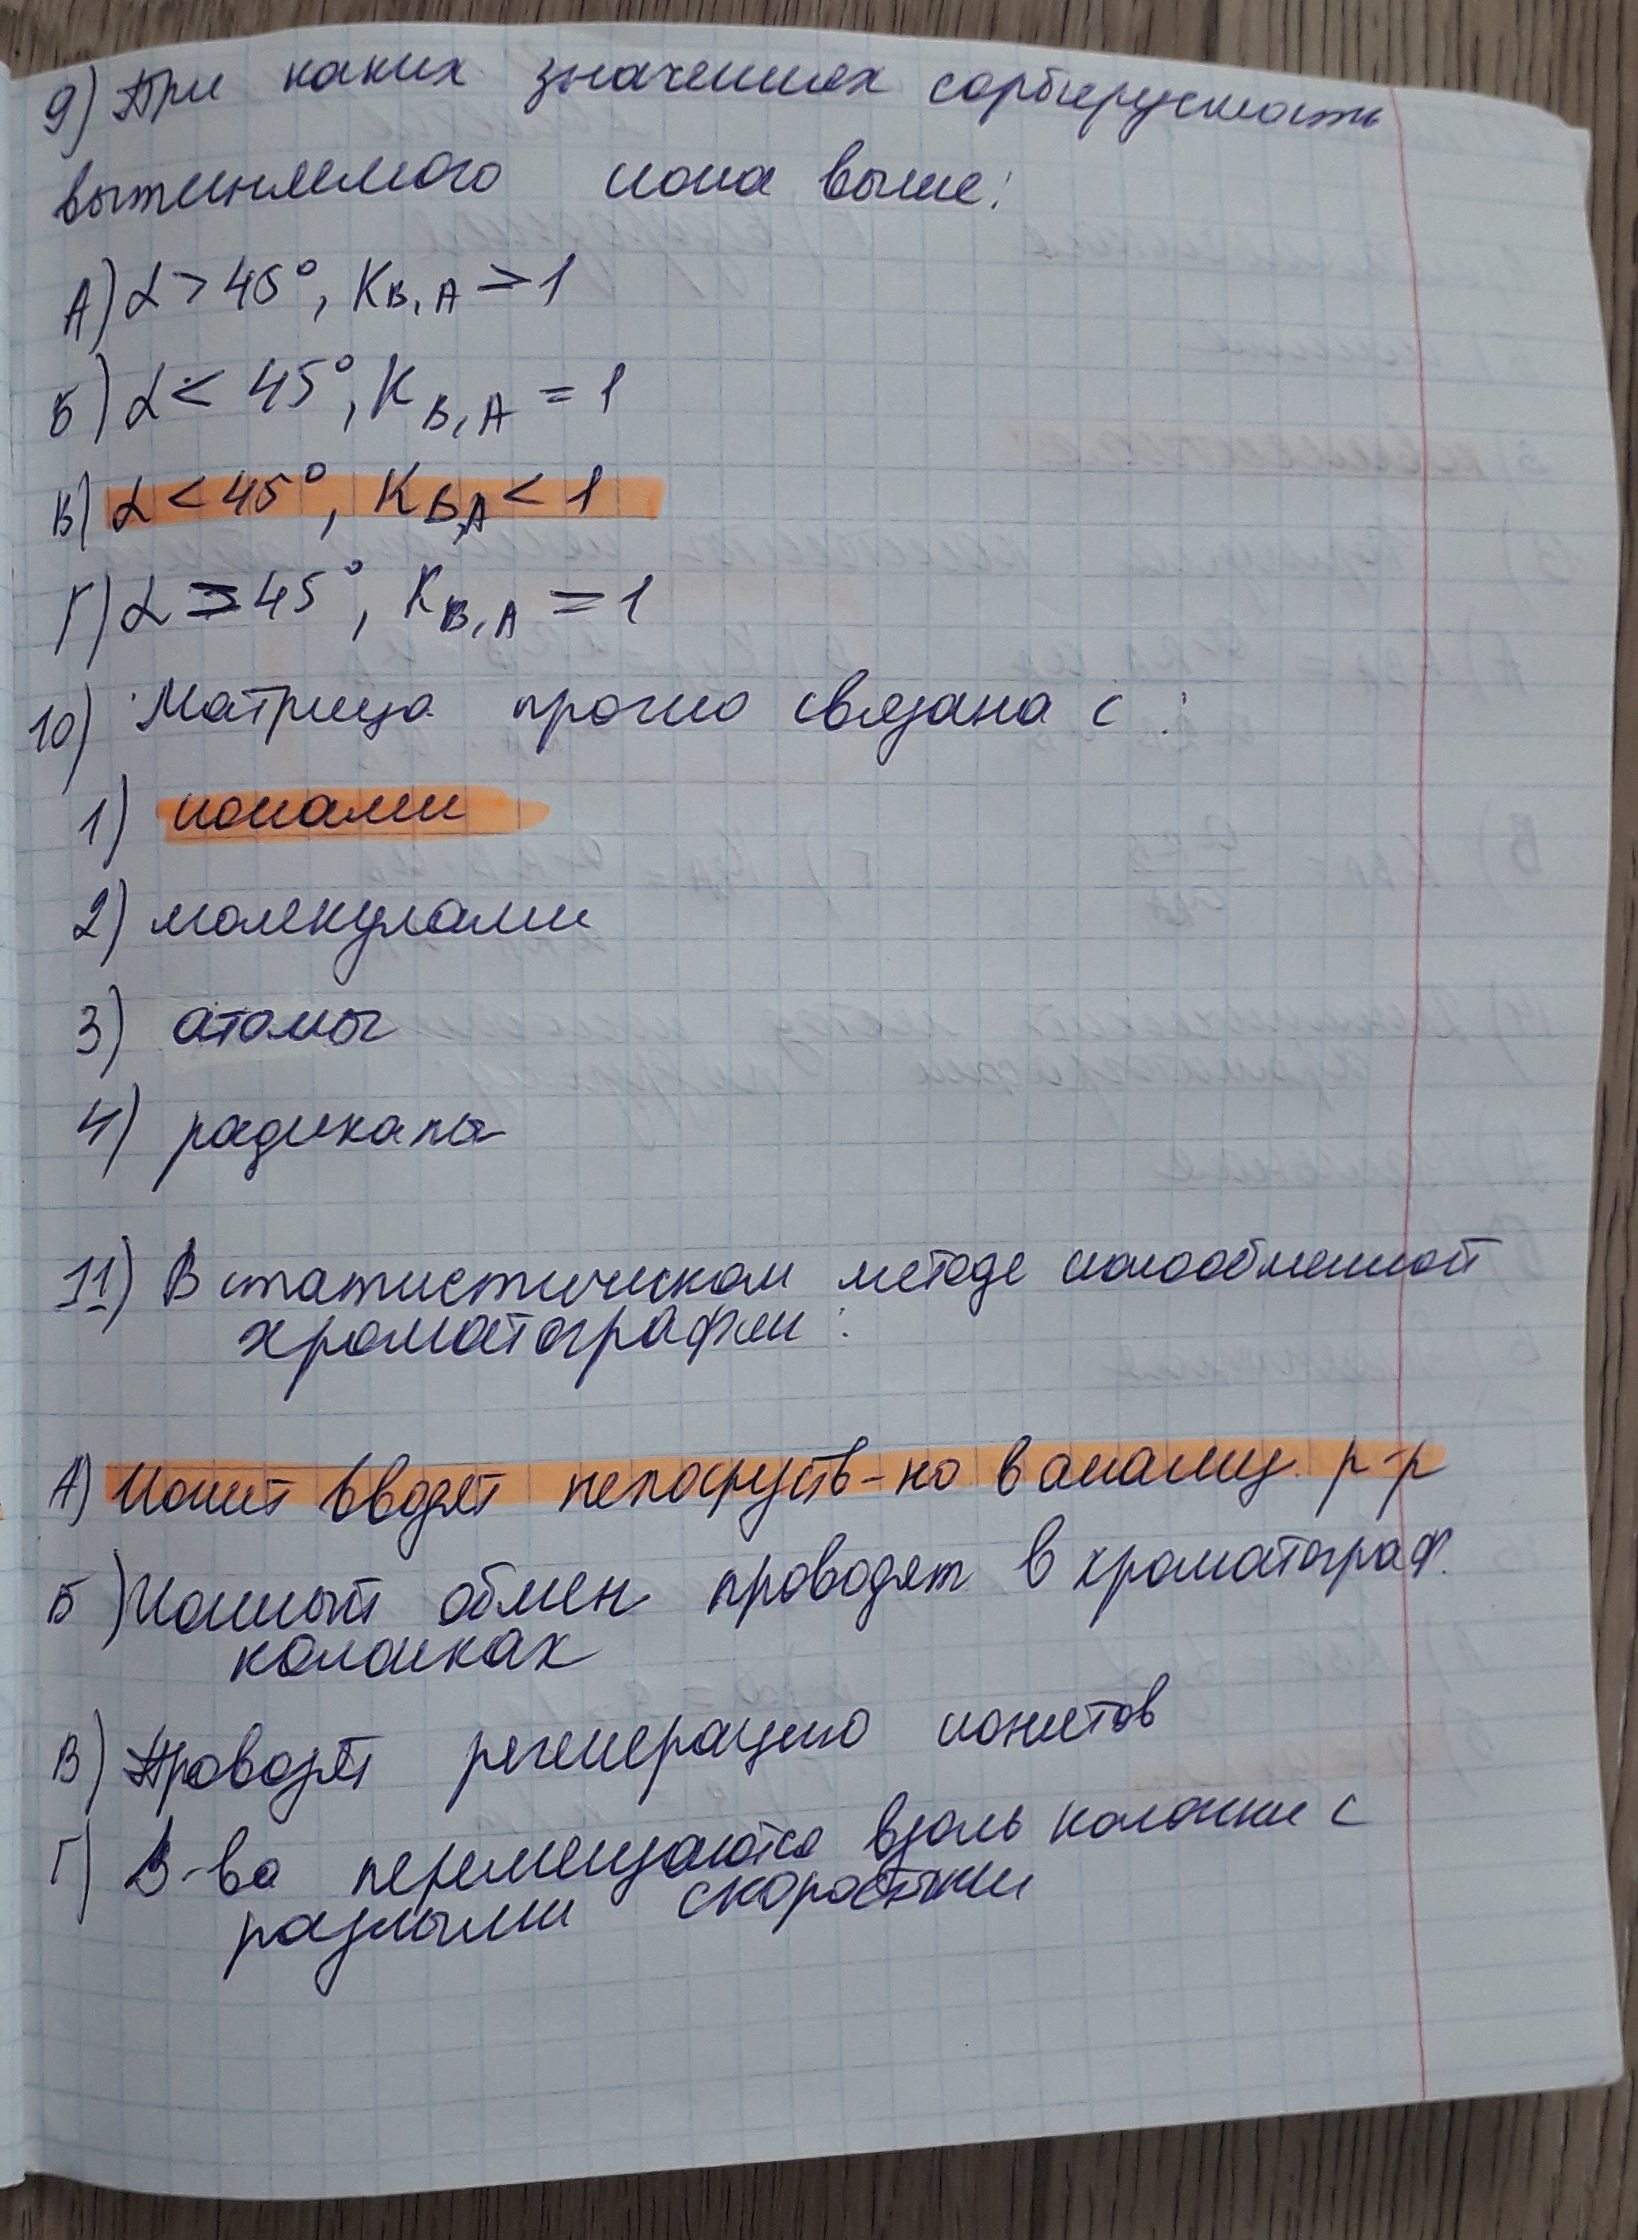 9) При каких значениях сорбируемость
вытесняемого иона выше:
А) α > 45°, K B, A > 1
Б) α < 45°, K B, A = 1
В) α < 45°, K B, A < 1
Г) α ≥ 45°, K B, A = 1
10) Матрица прочно связана с :
1) ионами
2) молекулами
3) атомы
4) радикалы
11) В статистическом методе ионообменной
хроматографии :
А) Ионит вводят непосредств-но в анализ. р-р
Б) Ионный обмен проводят в хроматограф.
колонках
В) Проводят регенерацию ионитов
Г) В-ва перемещаются вдоль колонки с
разными скоростями